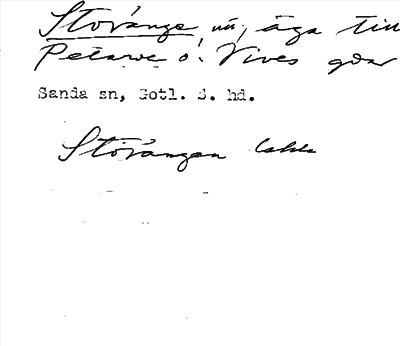 Storänge, äga till
Petarve o. Vives gdar
Sanda sn, Gotl. S. hd.
Storängen